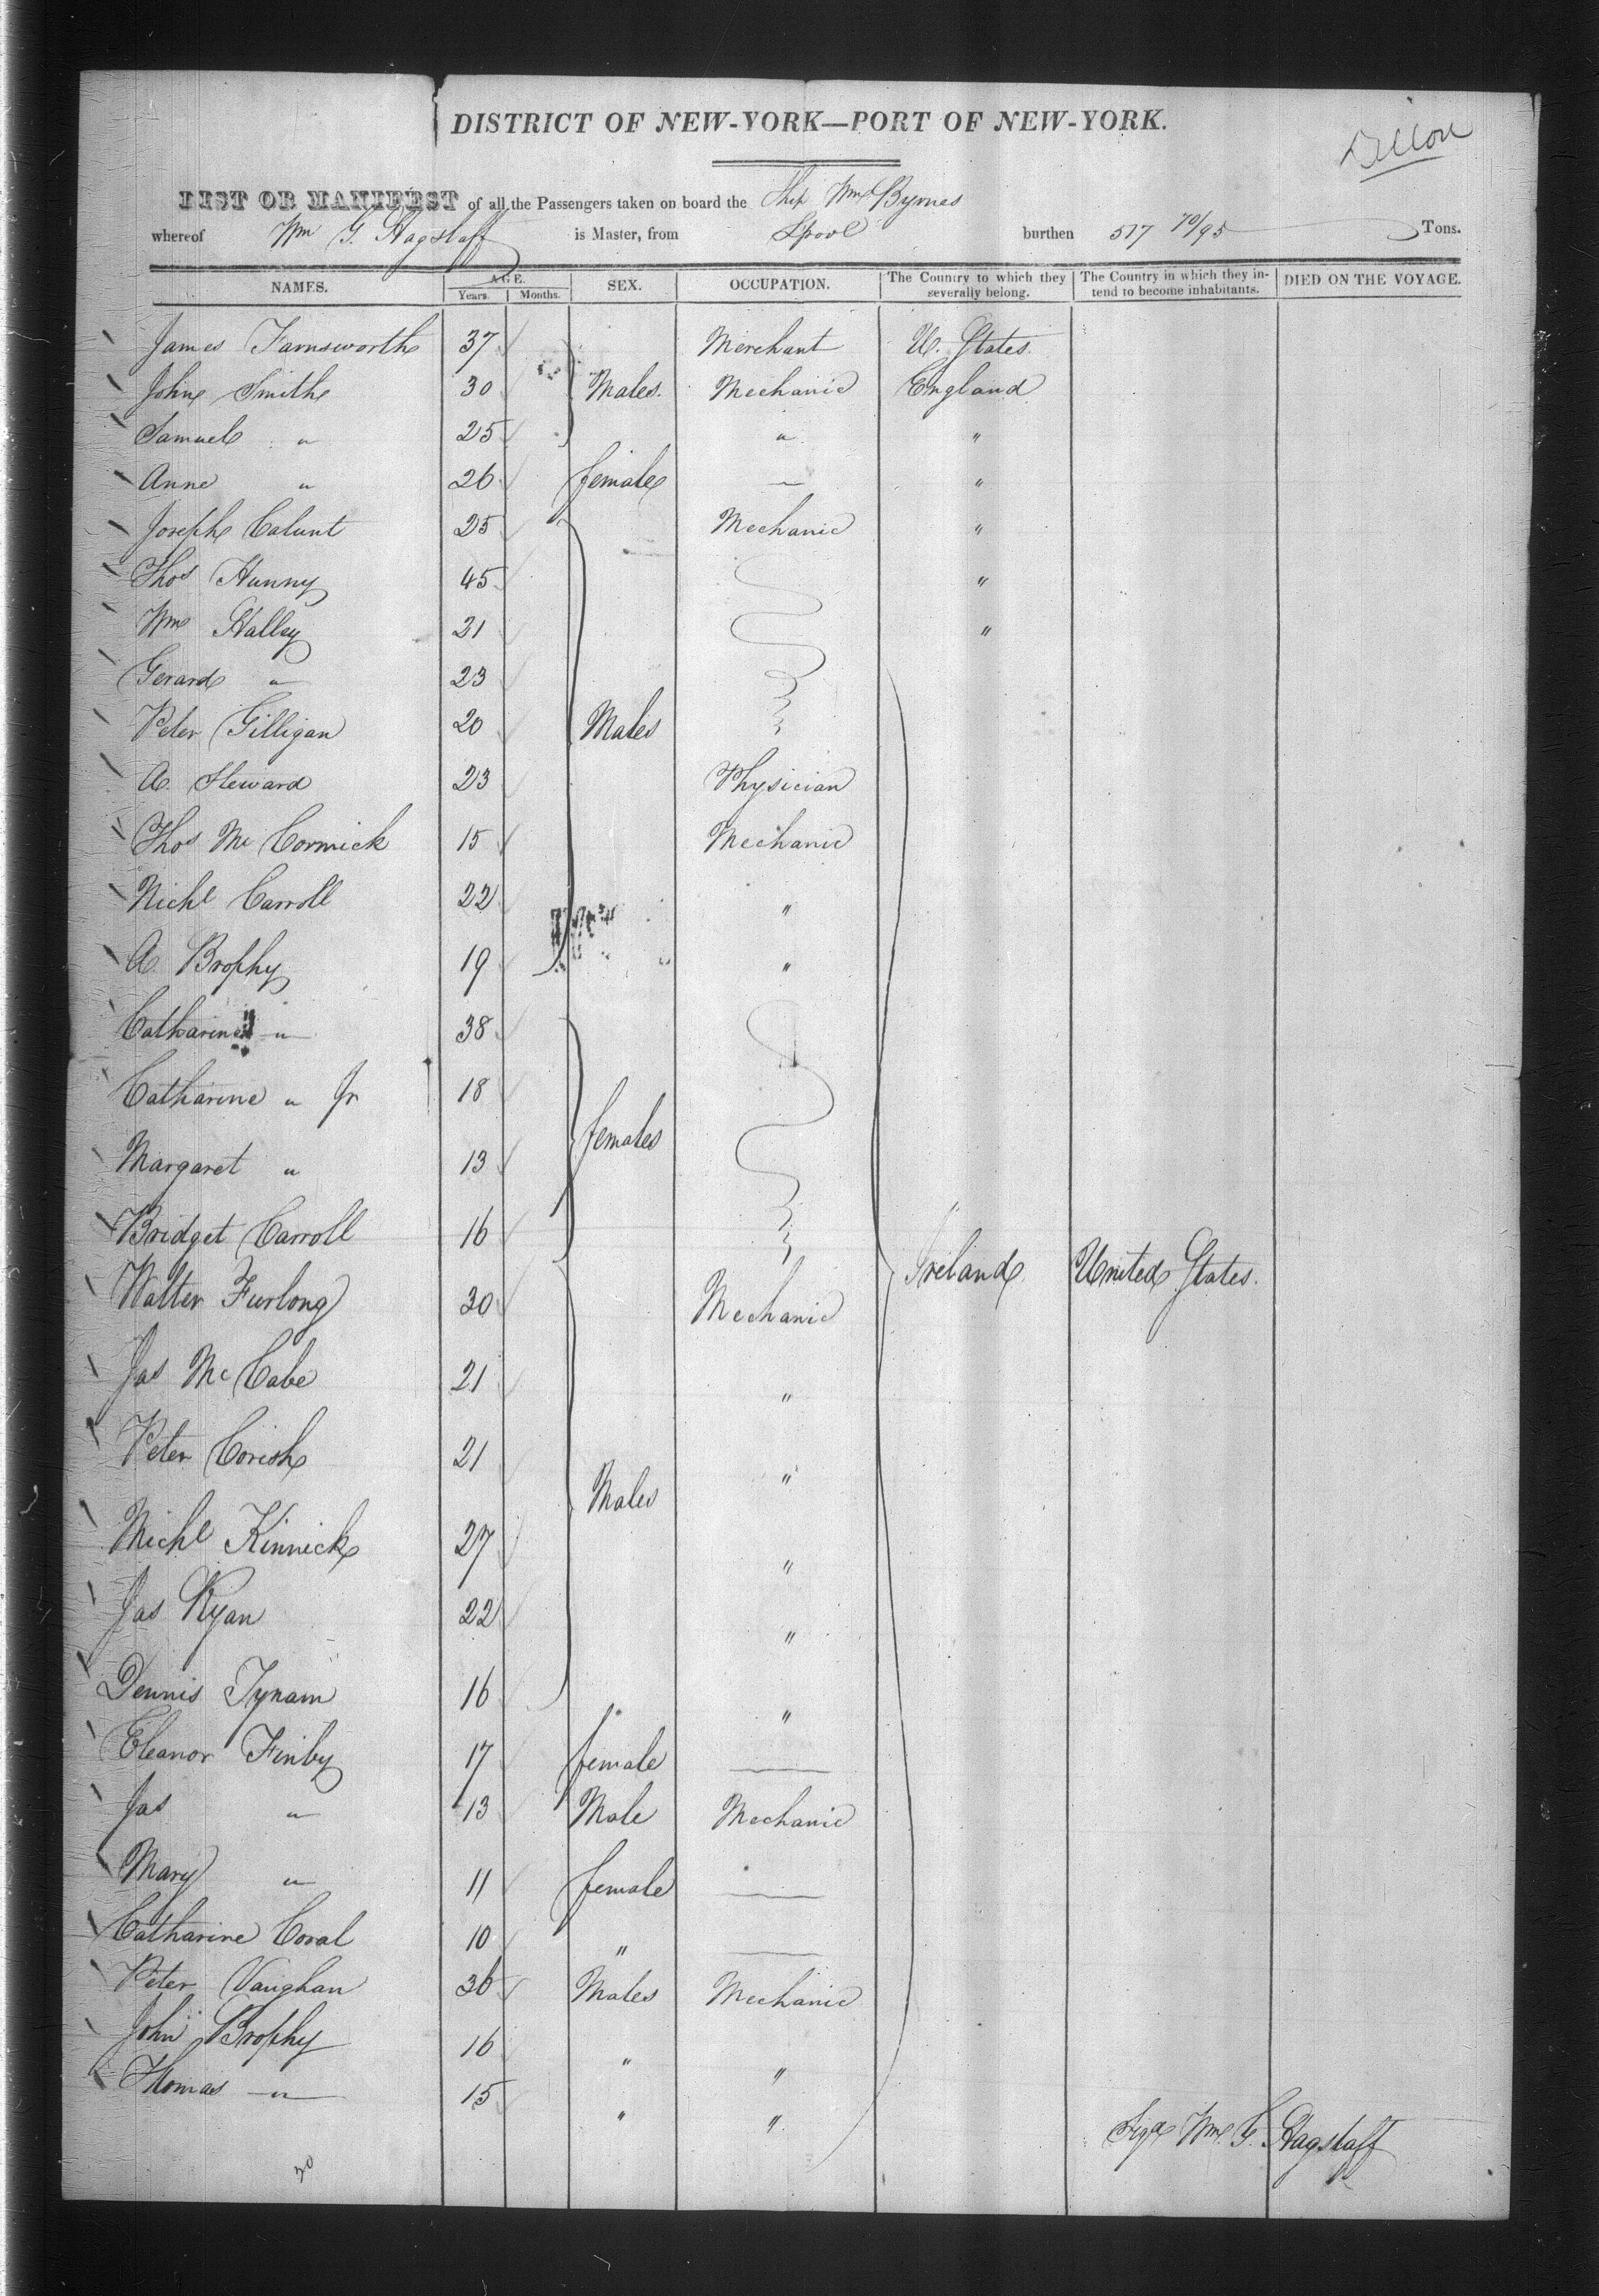 DISTRICT OF NEW-YORK—PORT OF NEW-YORK.
LIST OR MANIFEST of all the Passengers taken on board the Ship Wm Byrnes
whereof Wm G. Hagstaff is Master, from Lpool burthen 517 70/95 Tons.
NAMES. AGE. SEX. OCCUPATION. The Country to which they severally belong. The Country in which they intend to become inhabitants. DIED ON THE VOYAGE.
Years. Months.
James Farnsworth 37 Merchant U. States.
John Smith 30 Males. Mechanic England
Samuel " 25 " "
Anne " 26 female — "
Joseph Calunt 25 Mechanic "
Thos Hunny 45 "
Wm Halley 21 "
Gerard " 23
Peter Gilligan 20 Males
A. Steward 23 Physician
Thos Mc Cormick 15 Mechanic
Michl Carroll 22 "
A. Brophy 19 "
Catharine " 38
Catharine " Jr 18
Margaret " 13 females
Bridget Carroll 16
Walter Furlong 30 Mechanic Ireland United States.
Jas Mc Cabe 21 "
Peter Corish 21 "
Michl Kinnick 27 Males "
Jas Ryan 22 "
Dennis Tynam 16 "
Eleanor Finby 17 female —
Jas " 13 Male Mechanic
Mary " 11 female —
Catharine Coral 10 " —
Peter Vaughan 36 Males Mechanic
John Brophy 16 " "
Thomas " 15 " "
Sigd Wm G. Hagstaff
30